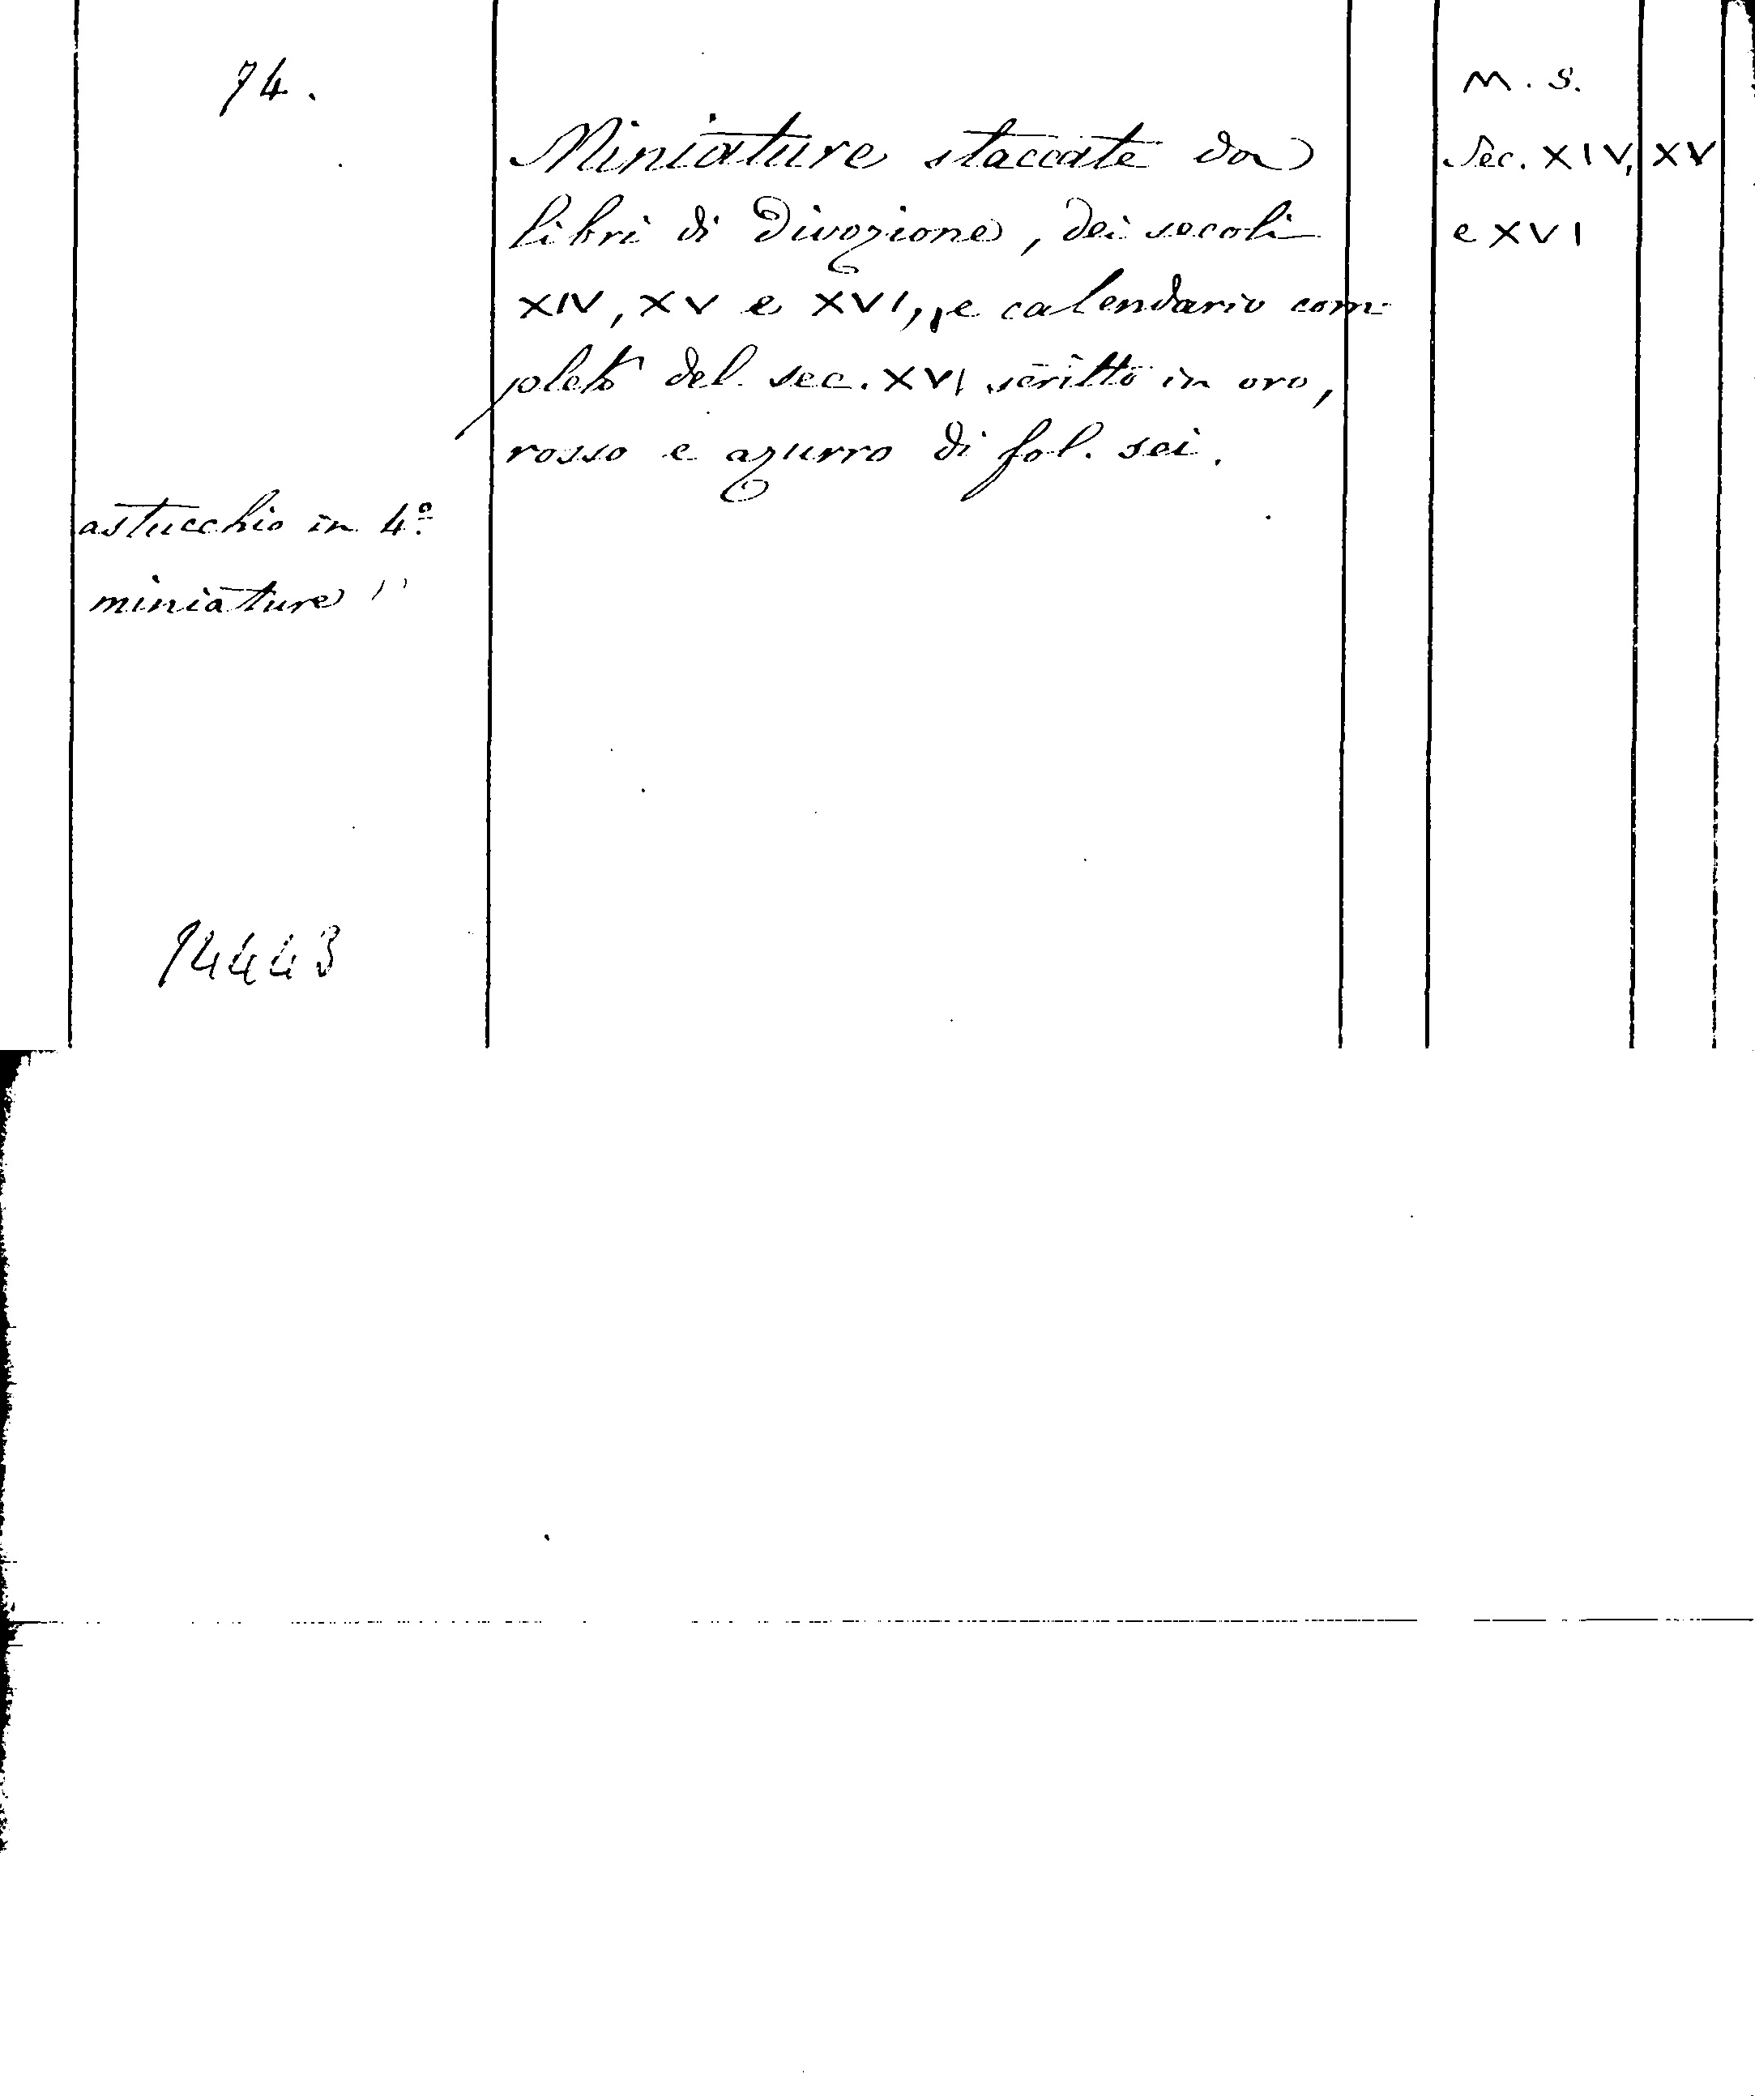 74.
M. S.
Miniature staccate da
Sec. XIV, XV
libri di divozione, dei secoli
e XVI
XIV, XV e XVI, e calendario com-
pleto del sec. XVI scritto in oro,
rosso e azurro di fol. sei.
astucchio in 4º
miniature
74443